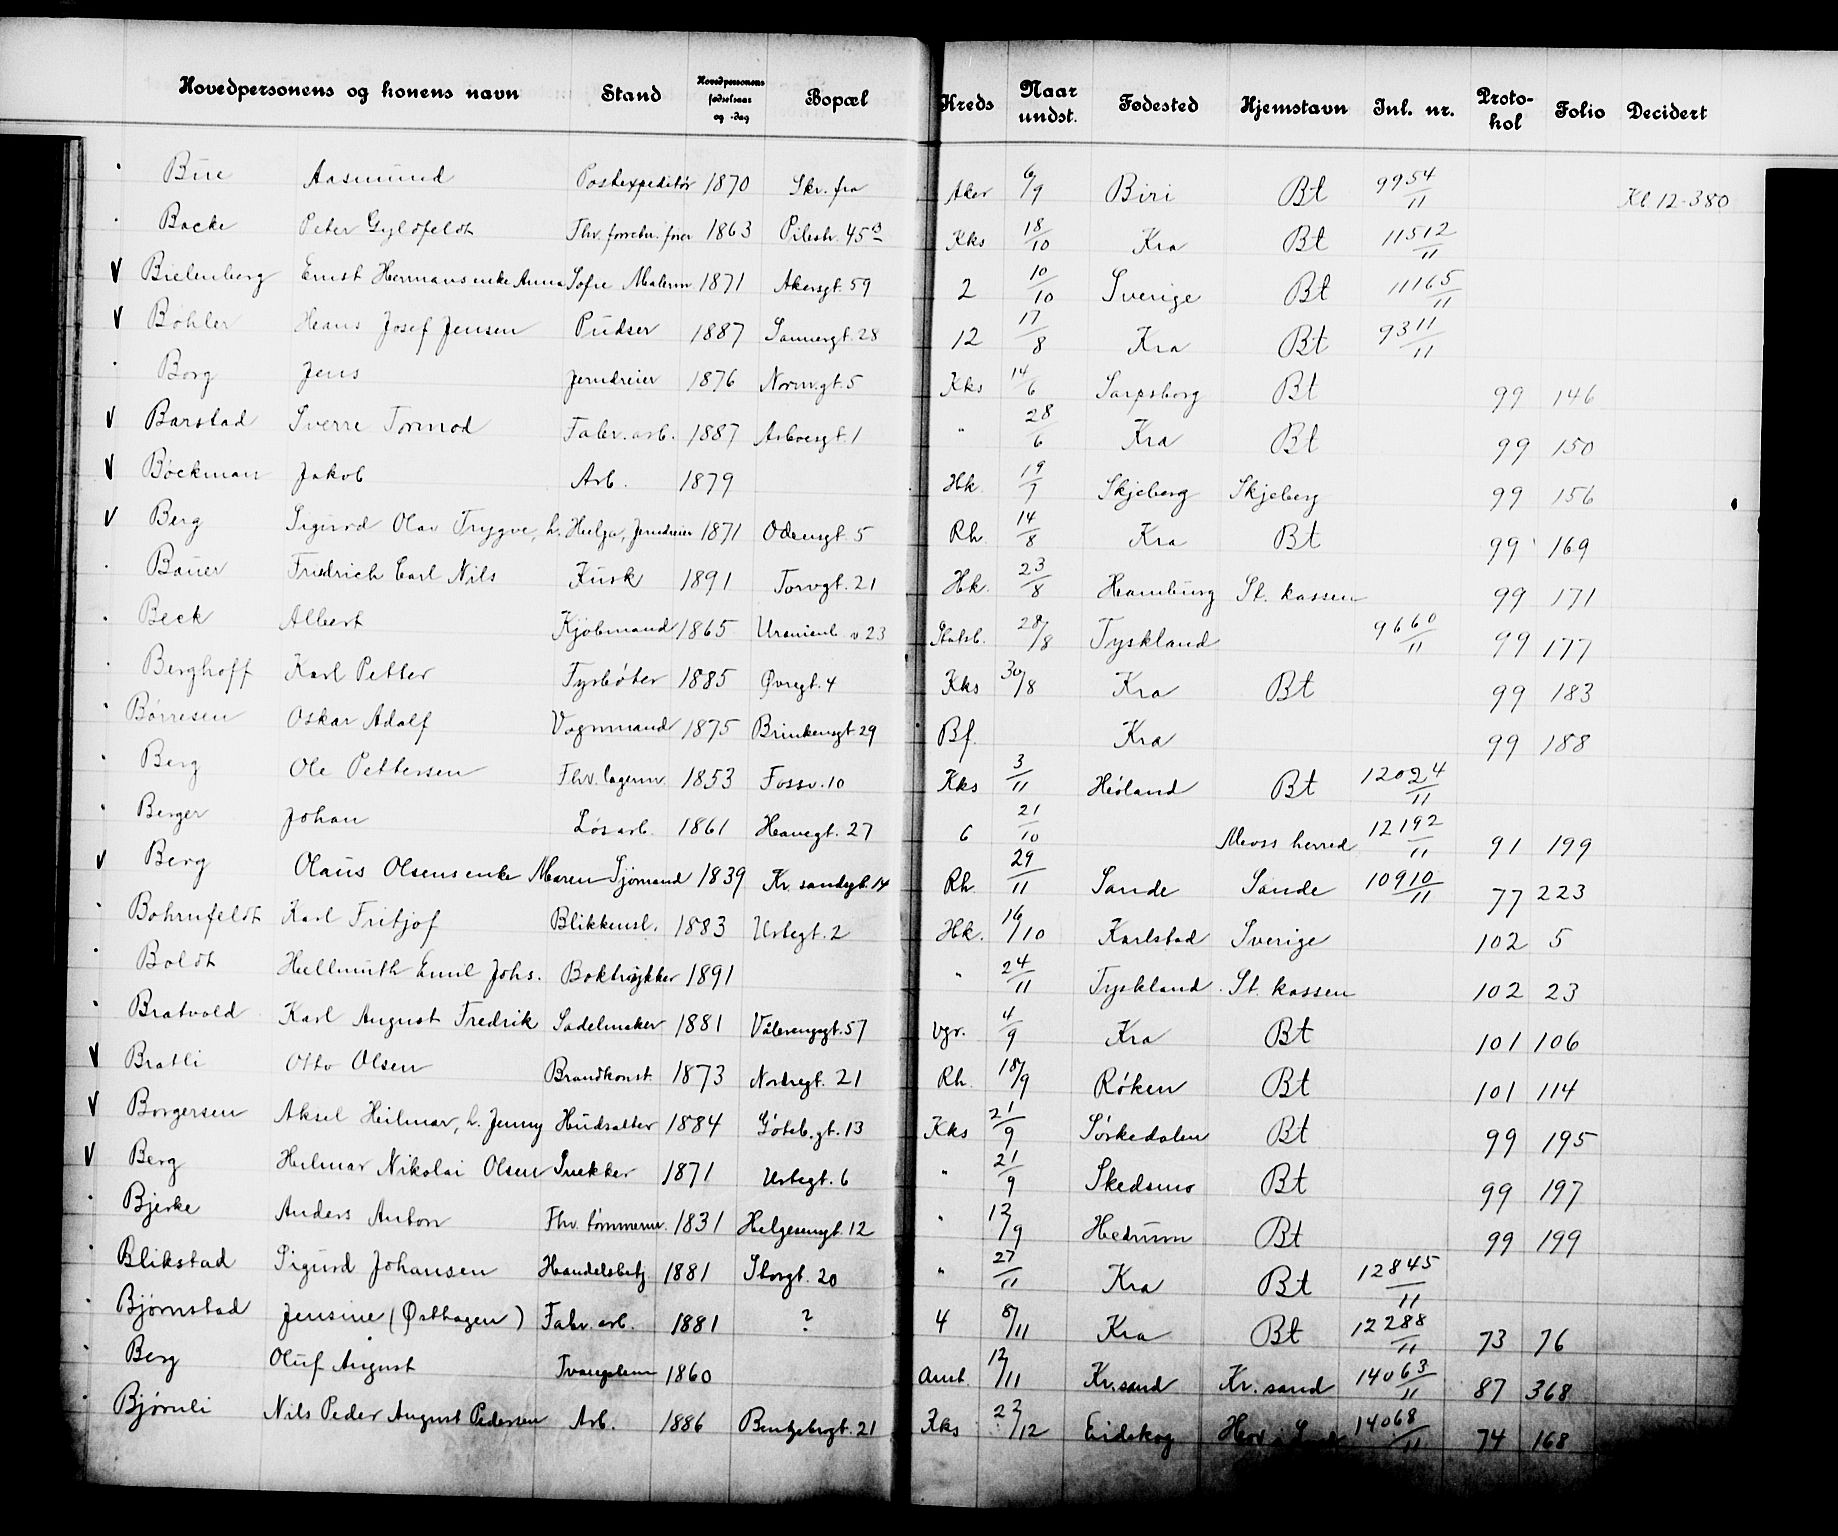 Hovedpersonens og konens navn Stand Hovedpersonens fødselsaar og -dag Bopæl Kreds Naar undst. Fødested Hjemstavn Inl. nr. Protokol Folio Decidert
Bue Aasmund Postexpeditør 1870 Skr. fra Aker 6/9 Biri Bt 9954/11 Kl 12-380
Backe Peter Gyldfeldt Fhv. forretn. fører 1863 Pilestr. 45 B Kks 18/10 Kra Bt 11512/11
V Bielenberg Ernst Hermansenke Anna Sofie Malerm 1871 Akersgt. 59 2 10/10 Sverige Bt 11165/11
V Bøhler Hans Josef Jensen Pudser 1887 Sannergt. 28 12 17/8 Kra Bt 9311/11
Borg Jens Jerndreier 1876 Norm.gt. 5 Kks 14/6 Sarpsborg Bt 99 146
V Barstad Sverre Tormod Fabr. arb. 1887 Asboesgt. 1 " 28/6 Kra Bt 99 150
V Bøckman Jakob Arb. 1879 Hk. 19/7 Skjeberg Skjeberg 99 156
V Berg Sigurd Olav Trygve, h. Helga, Jerndreier 1871 Odensgt. 5 Rh. 14/8 Kra Bt 99 169
Bauer Friedrich Carl Nils Kusk 1891 Torvgt. 21 Hk. 23/8 Hamburg St. kassen 99 171
Beck Albert Kjøbmand 1865 Uranienb. v 23 Statsb. 28/8 Tyskland 9660/11 99 177
Berghoff Karl Petter Fyrbøter 1885 Øvregt. 4 Kks 30/8 Kra Bt 99 183
Børresen Oskar Adolf Vognmand 1875 Brinkengt 29 Bf. Kra 99 188
Berg Ole Pettersen Fhv. lagerm. 1853 Fossv. 10 Kks 3/11 Høland Bt 12024/11
Berger Johan Løsarb. 1861 Havegt. 27 6 21/10 Moss herred 12192/11 91 199
V Berg Olaus Olsensenke Maren Sjømand 1839 Kr. sandsgt. 14 Rh. 29/11 Sande Sande 10910/11 77 223
Bohrnfeldt Karl Fritjof Blikkensl. 1883 Urtegt. 2 Hk. 16/10 Karlstad Sverige 102 5
Boldt Hellmuth Emil Johs. Boktrykker 1891 " 24/11 Tyskland St. kassen 102 23
Bratvold Karl August Fredrik Sadelmaker 1881 Vålerengsgt. 57 Vgr. 4/9 Kra Bt 101 106
V Bratli Otto Olsen Brandkonst. 1873 Nordregt. 21 Rh. 18/9 Røken Bt 101 114
V Borgersen Aksel Hilmar, h. Jenny Hudsalter 1884 Gøteb.gt. 13 Kks 21/9 Sørkedalen Bt 99 195
V Berg Hilmar Nikolai Olsen Snekker 1871 Urtegt. 6 " 21/9 Skedsmo Bt 99 197
Bjerke Anders Anton Fhv. tømmerm. 1831 Helgesensgt. 12 " 12/9 Hedrum Bt 99 199
Blikstad Sigurd Johansen Handelsbetj 1881 Storgt. 20 " 27/11 Kra Bt 12845/11
Bjørnstad Jensine (Østhagen) Fabr. arb. 1881 ? 4 8/11 Kra Bt 12288/11 73 76
Berg Oluf August 1860 Amt. 12/11 Kr.sand Kr. sand 14063/11 87 368
Bjørnli Nils Peder August Pedersen Arb. 1886 Bentsebrogt. 21 Kks 22/12 Eidskog 14068/11 74 168